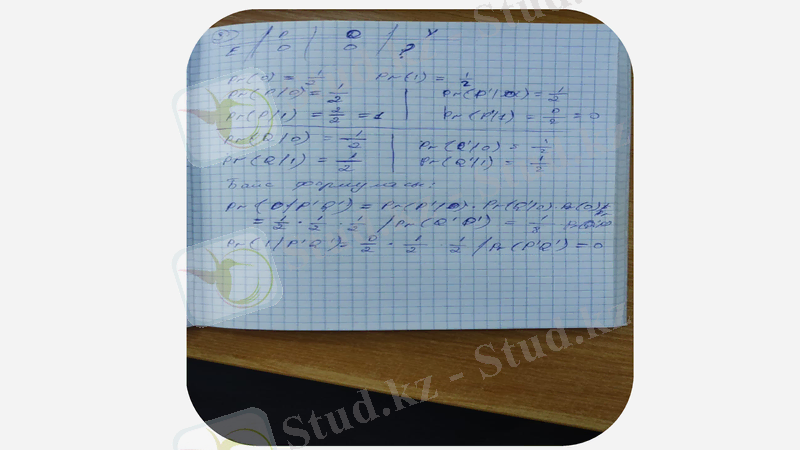 E | P | Q | Y
E | 0 | 0 | ?
Pr(0) = 1/2 Pr(1) = 1/2
Pr(P/0) = 1/2 | Pr(P'/0) = 1/2
Pr(P/1) = 2/2 = 1 | Pr(P'/1) = 0/2 = 0
Pr(Q/0) = 1/2 | Pr(Q'/0) = 1/2
Pr(Q/1) = 1/2 | Pr(Q'/1) = 1/2
Байс формуласы:
Pr(0/P'Q') = Pr(P'/0) · Pr(Q'/0) · Pr(0)/
= 1/2 · 1/2 · 1/2 / Pr(Q'P') = 1/8
Pr(1/P'Q') = 0/2 · 1/2 · 1/2 / Pr(P'Q') = 0
Stud.kz - Stud.kz
Stud.kz - Stud.kz